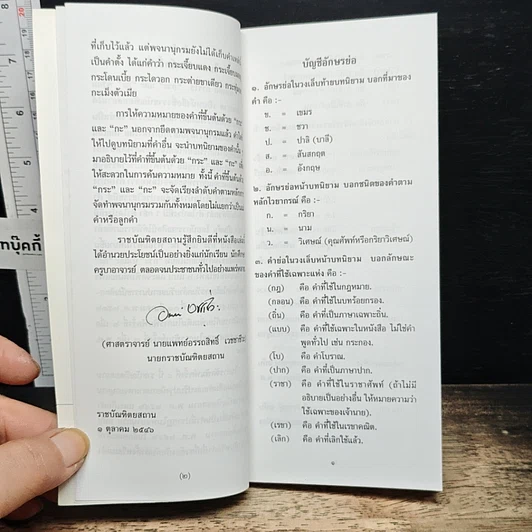 ที่เก็บไว้แล้ว แต่พจนานุกรมยังไม่ได้เก็บ
เป็นคำตั้ง ได้แก่คำว่า กระเจี๊ยบแดง
กระโดนเบี้ย กระไดวอก กระต่ายขาเดียว
กะเม็งตัวเมีย
การให้ความหมายของคำที่ขึ้นต้นด้วย "กระ"
และ "กะ" นอกจากยึดตามพจนานุกรมแล้ว
ให้ไปดูบทนิยามที่คำอื่น จะนำบทนิยามของคำนั้น
มาอธิบายไว้ที่คำที่ขึ้นต้นด้วย "กระ" และ "กะ"
ให้สะดวกในการค้นความหมาย ทั้งนี้
"กระ" และ "กะ" จะจัดเรียงลำดับคำตาม
จัดทำพจนานุกรมรวมกันทั้งหมดโดยไม่แยกว่าเป็น
คำหรือลูกคำ
ราชบัณฑิตยสถานรู้สึกยินดีที่หนังสือ
ได้อำนวยประโยชน์เป็นอย่างยิ่งแก่นักเรียน
ครูบาอาจารย์ ตลอดจนประชาชนทั่วไปอย่าง
(ศาสตราจารย์ นายแพทย์อรรถสิทธิ์ เวชชาชีวะ)
นายกราชบัณฑิตยสถาน
ราชบัณฑิตยสถาน
๑ ตุลาคม ๒๕๔๖
(๒)
บัญชีอักษรย่อ
๑. อักษรย่อในวงเล็บท้ายบทนิยาม บอกที่มาของ
คำ คือ :-
ข. = เขมร
ช. = ชวา
ป. = ปาลิ (บาลี)
ส. = สันสกฤต
อ. = อังกฤษ
๒. อักษรย่อหน้าบทนิยาม บอกชนิดของคำตาม
หลักไวยากรณ์ คือ :-
ก. = กริยา
น. = นาม
ว. = วิเศษณ์ (คุณศัพท์หรือกริยาวิเศษณ์)
๓. คำย่อในวงเล็บหน้าบทนิยาม บอกลักษณะ
ของคำที่ใช้เฉพาะแห่ง คือ :-
(กฎ) คือ คำที่ใช้ในกฎหมาย.
(กลอน) คือ คำที่ใช้ในบทร้อยกรอง.
(ถิ่น) คือ คำที่เป็นภาษาเฉพาะถิ่น.
(แบบ) คือ คำที่ใช้เฉพาะในหนังสือ ไม่ใช่คำ
พูดทั่วไป เช่น กระกอง.
(โบ) คือ คำโบราณ.
(ปาก) คือ คำที่เป็นภาษาปาก.
(ราชา) คือ คำที่ใช้ในราชาศัพท์ (ถ้าไม่มี
อธิบายเป็นอย่างอื่น ให้หมายความว่า
ใช้เฉพาะของเจ้านาย).
(เรขา) คือ คำที่ใช้ในเรขาคณิต.
(เลิก) คือ คำที่เลิกใช้แล้ว.
๑